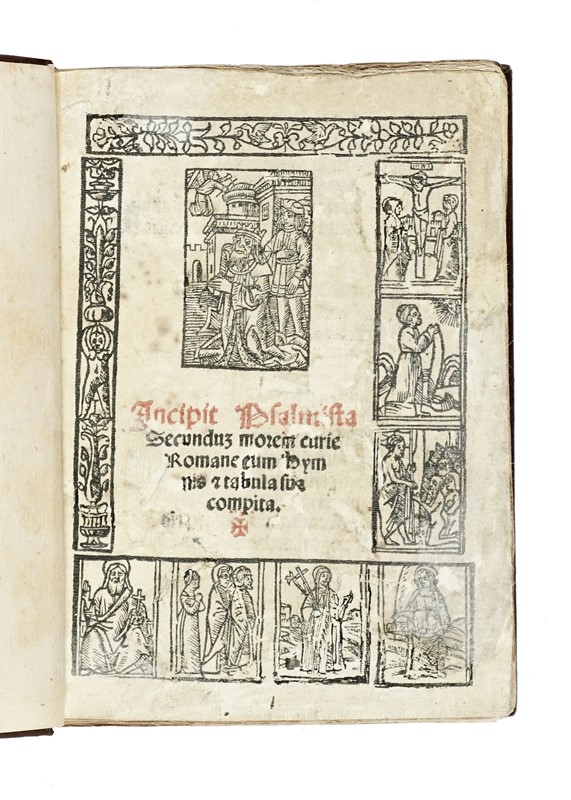 Incipit Psalmista
Secunduz morem curie
Romane cum Hym
nis ⁊ tabula sua
compita.